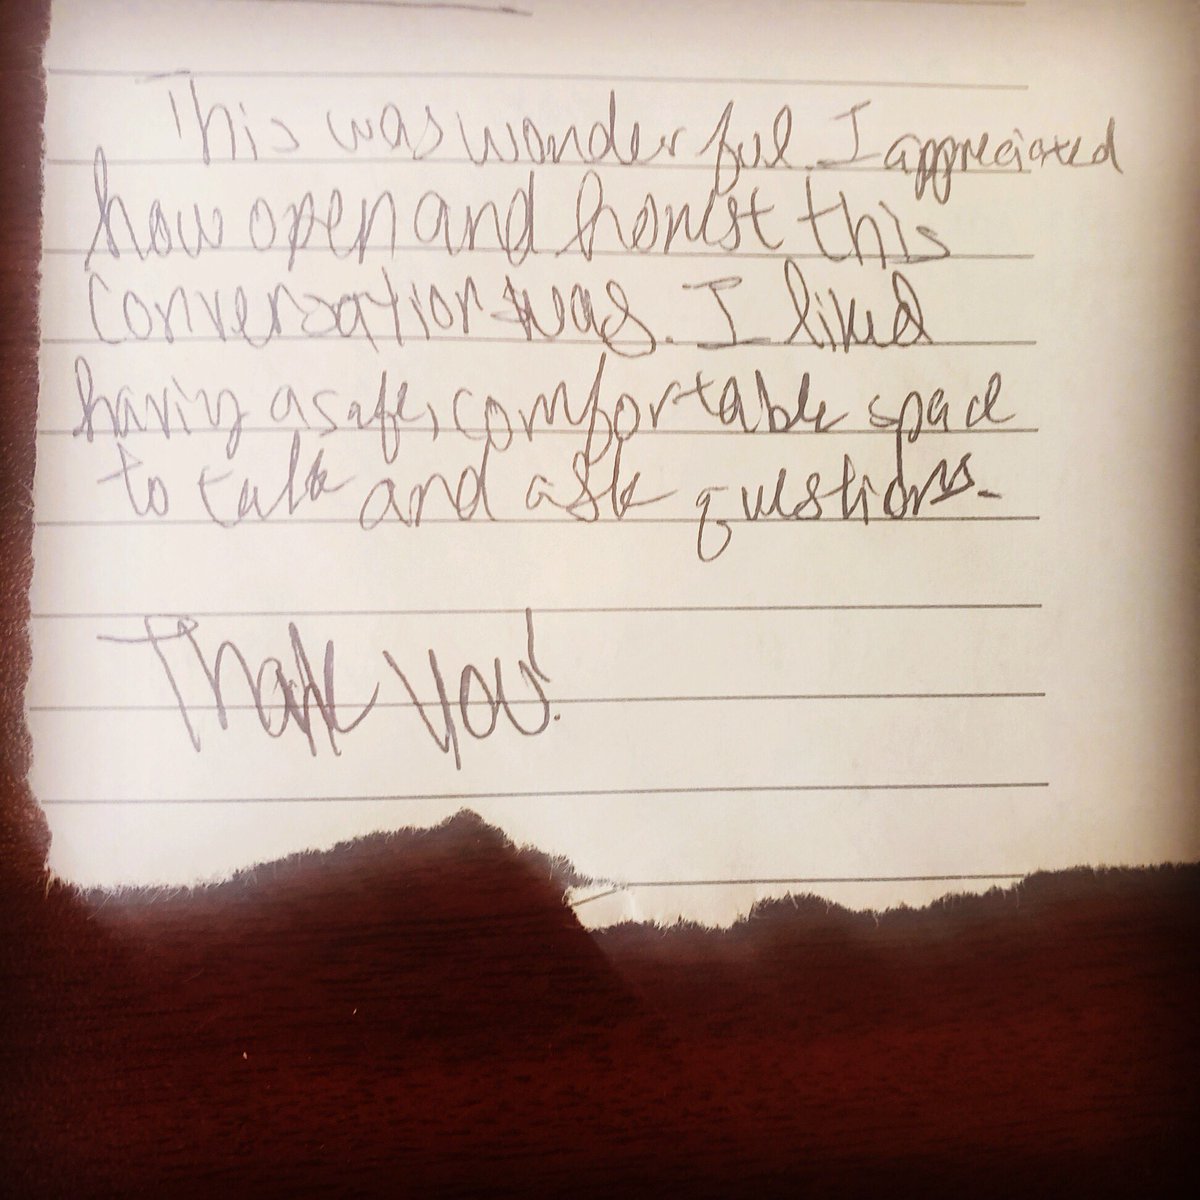 This was wonderful. I appreciated
how open and honest this
conversation was. I liked
having a safe, comfortable space
to talk and ask questions.
Thank you!